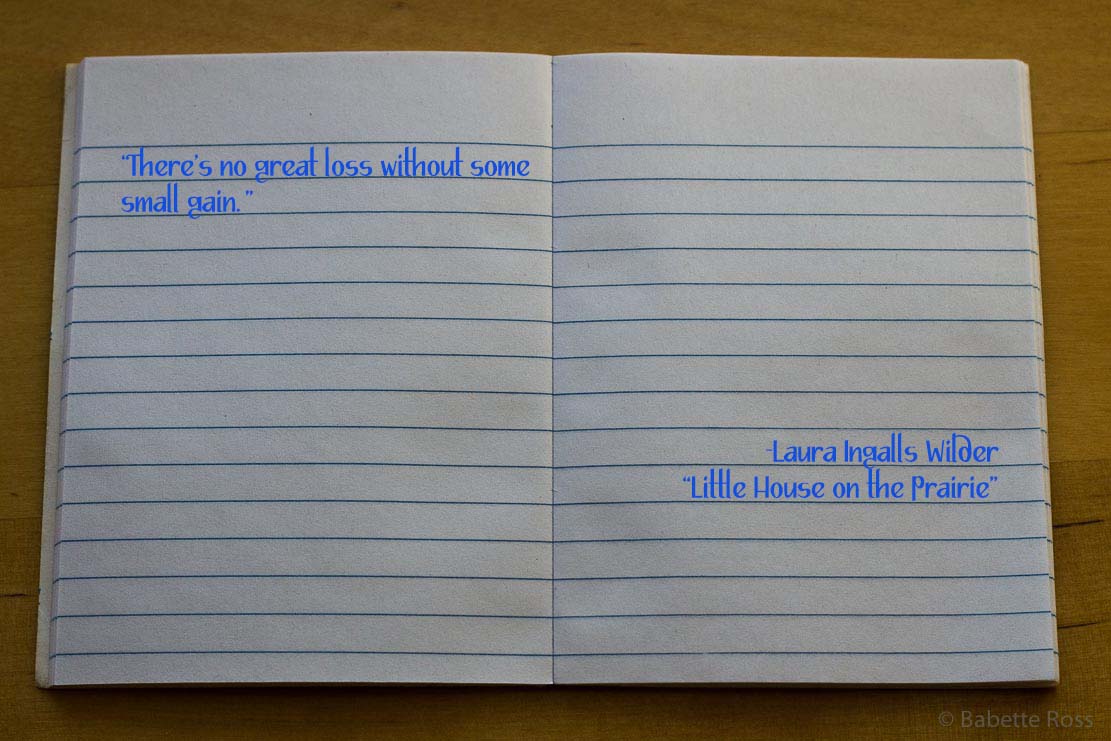 “There's no great loss without some
small gain.”
-Laura Ingalls Wilder
“Little House on the Prairie”
© Babette Ross